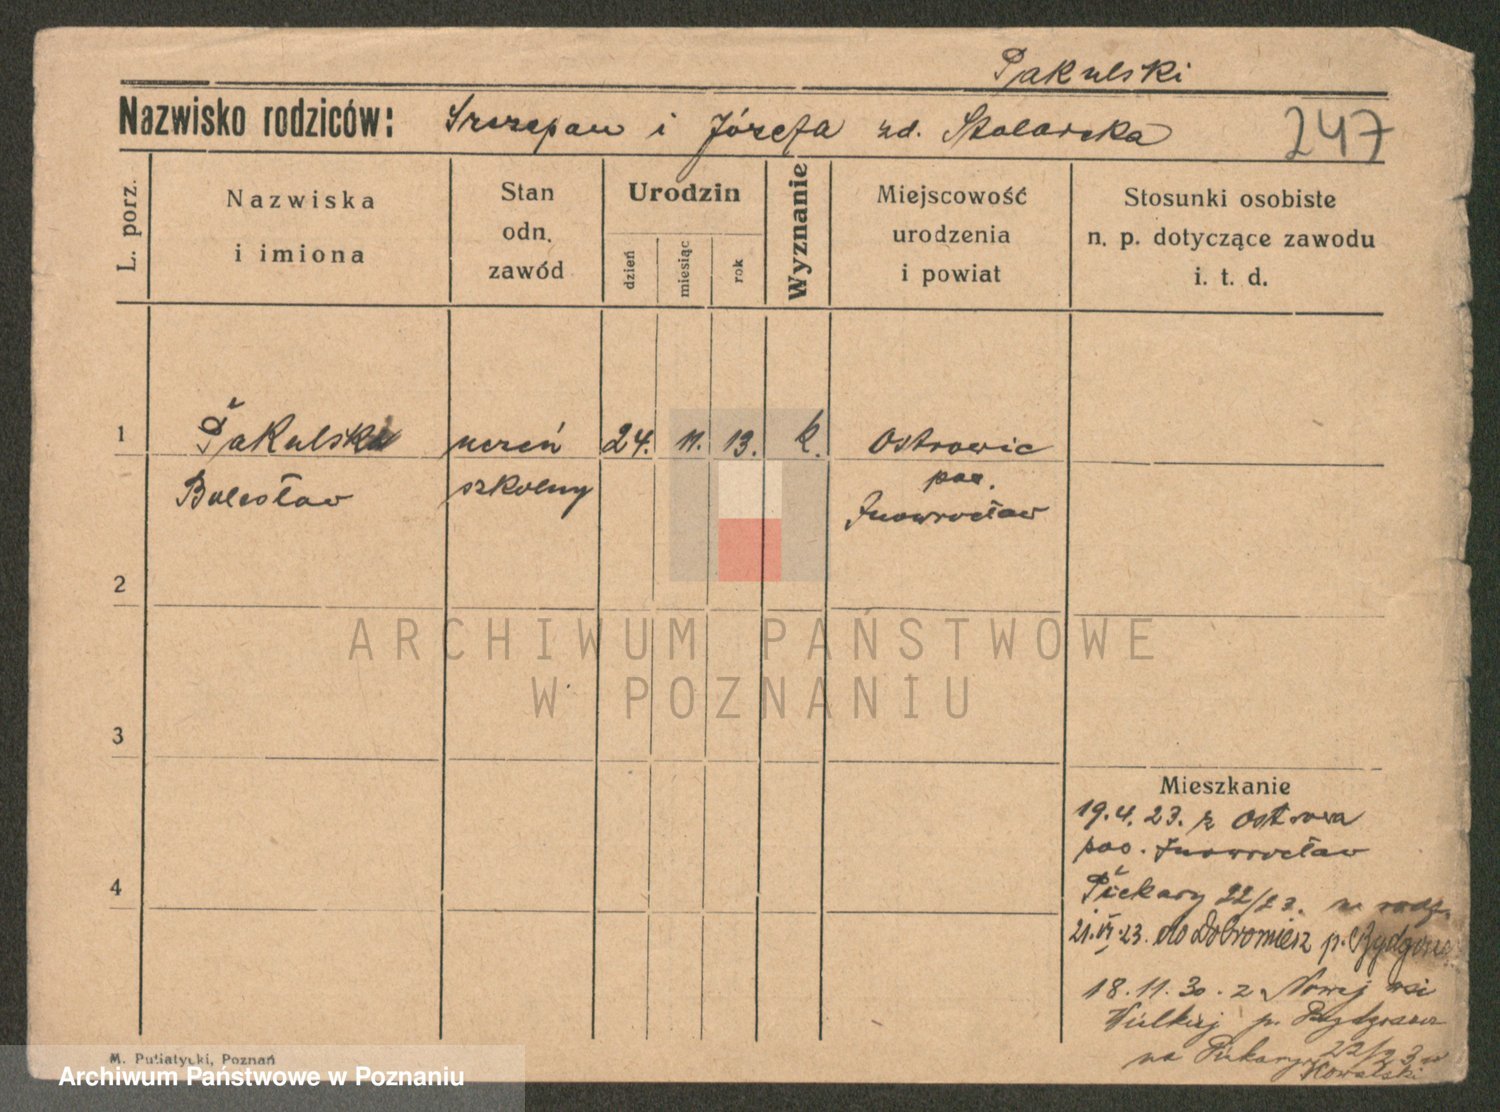 Pakulski
Nazwisko rodziców: Szczepan i Józefa zd. Stolarska
247
L. porz.
Nazwiska
i imiona
Stan
odn.
zawód
Urodzin
dzień
miesiąc
rok
Wyznanie
Miejscowość
urodzenia
i powiat
Stosunki osobiste
n. p. dotyczące zawodu
i. t. d.
1 Pakulski uczeń 24. 11. 13. k. Ostrowie
Bolesław szkolny pow.
Inowrocław
2
ARCHIWUM PAŃSTWOWE
W POZNANIU
3
Mieszkanie
19.4.23. z Ostrowa
pow. Inowrocław
4
Piekary 22/23. u rodz.
21.VI.23. do Dobromierz p. Bydgoszcz
18.11.30. z Nowej wsi
Wielkiej p. Bydgoszcz
na Piekary 22/23 u
Kowalski
M. Putiatycki, Poznań
Archiwum Państwowe w Poznaniu